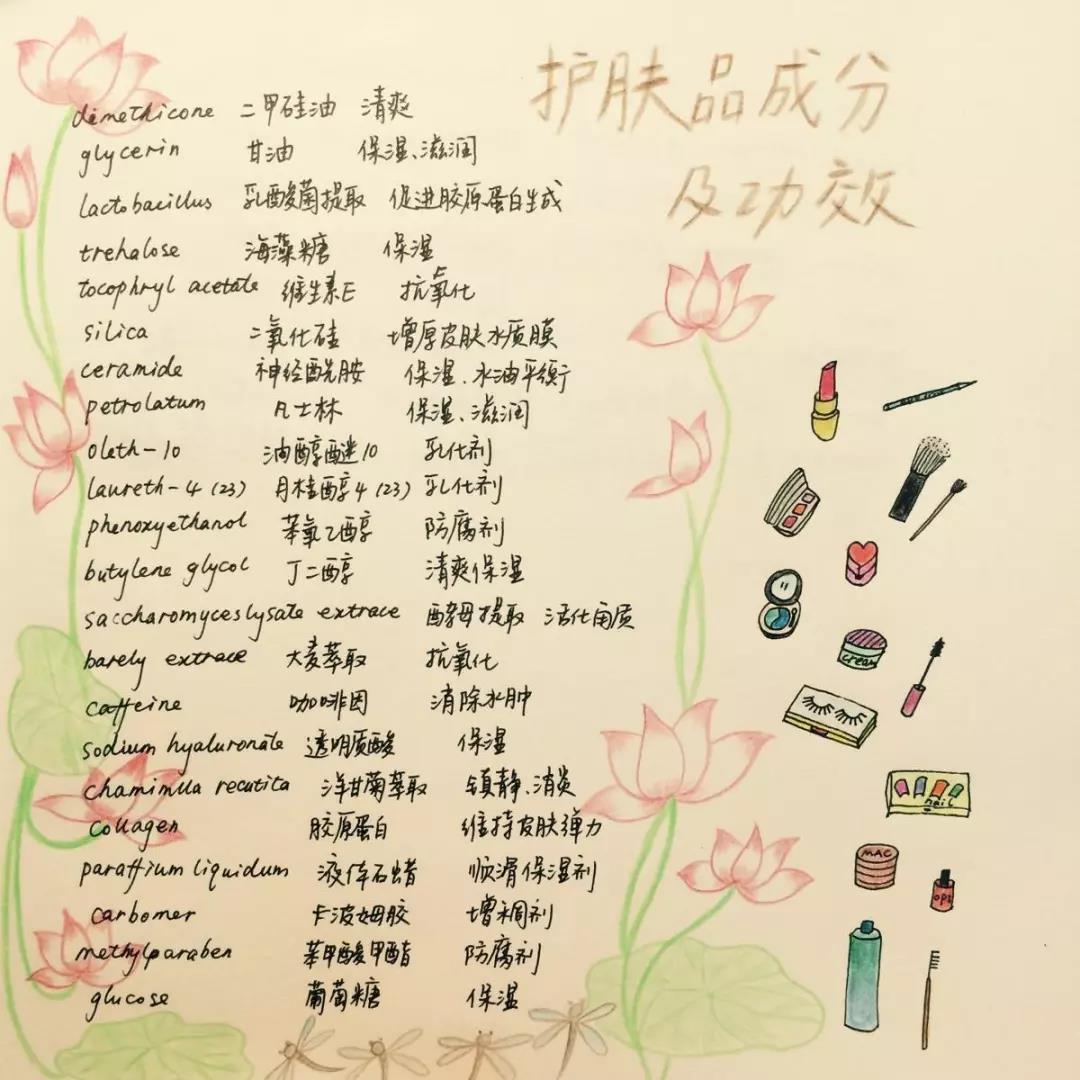 护肤品成分
及功效
dimethicone 二甲硅油 清爽
glycerin 甘油 保湿、滋润
lactobacillus 乳酸菌提取 促进胶原蛋白生成
trehalose 海藻糖 保湿
tocophryl acetate 维生素E 抗氧化
silica 二氧化硅 增厚皮肤水质膜
ceramide 神经酰胺 保湿、水油平衡
petrolatum 凡士林 保湿、滋润
oleth-10 油醇醚10 乳化剂
laureth-4 (23) 月桂醇4 (23) 乳化剂
phenoxyethanol 苯氧乙醇 防腐剂
butylene glycol 丁二醇 清爽保湿
saccharomyceslysate extrace 酵母提取 活化角质
barely extrace 大麦萃取 抗氧化
caffeine 咖啡因 消除水肿
sodium hyaluronate 透明质酸 保湿
chamimlla recutita 洋甘菊萃取 镇静、消炎
collagen 胶原蛋白 维持皮肤弹力
paraffium liquidum 液体石蜡 顺滑保湿剂
carbomer 卡波姆胶 增稠剂
methylparaben 苯甲酸甲酯 防腐剂
glucose 葡萄糖 保湿
cream
nail
MAC
OPI